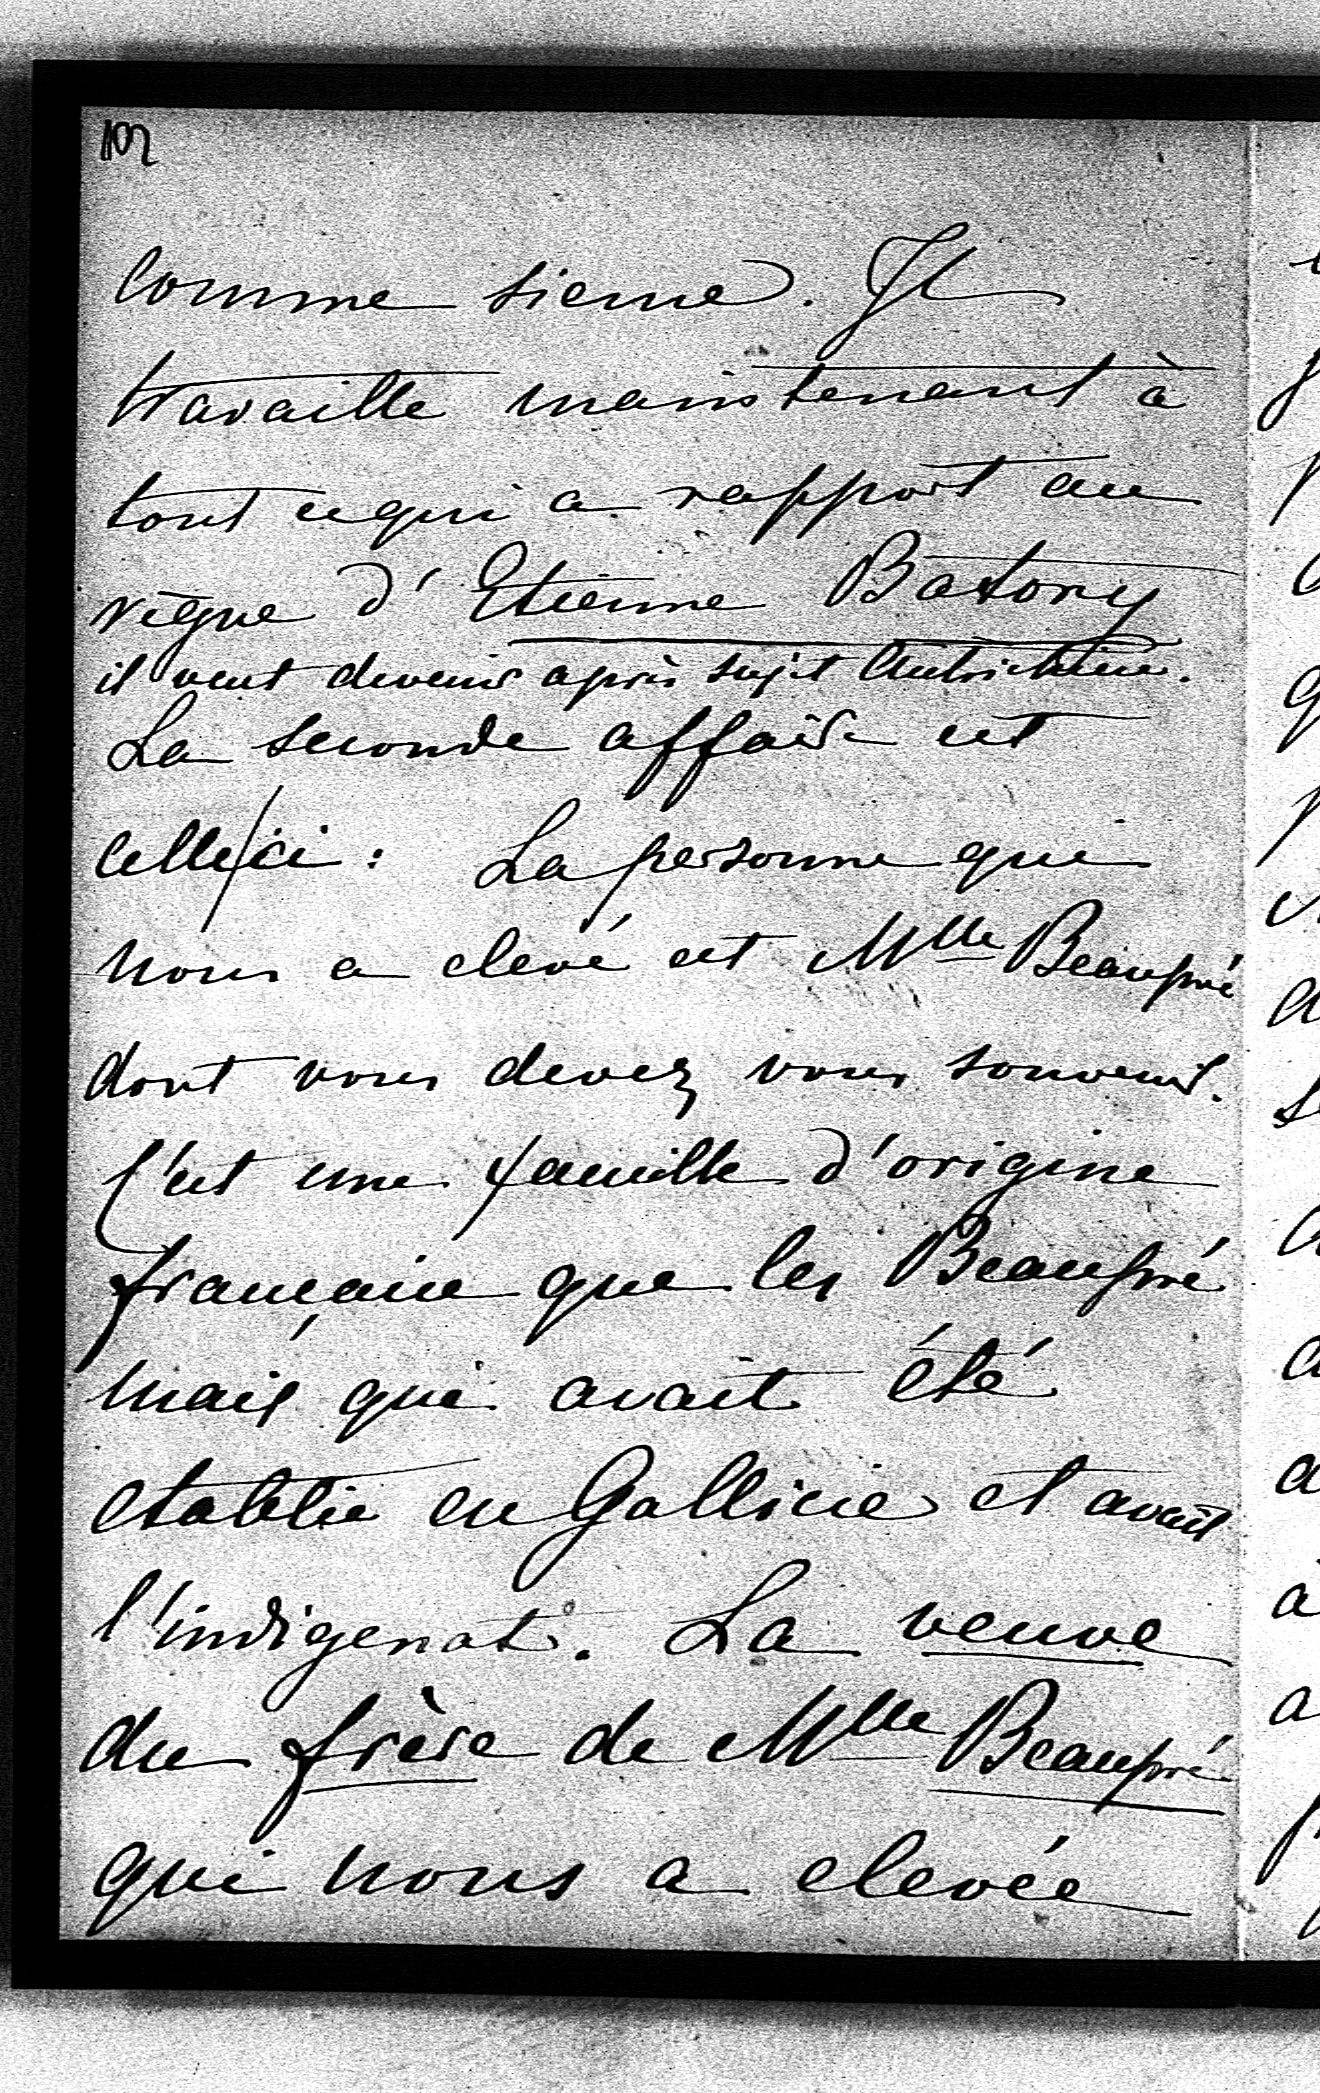 102
comme sienne. Il
travaille maintenant à
tout ce qui a rapport au
règne d'Etienne Batory
il veut devenir après sujet Autrichien.
La seconde affaire est
celle/ci : La personne qui
nous a elevé est Mlle Beaupré
dont vous devez vous souvenir.
C'est une famille d'origine
française que les Beaupré
mais qui avait été
etablie en Gallicie et avait
l'indigenat. La veuve
du frère de Mlle Beaupré
qui nous a elevée